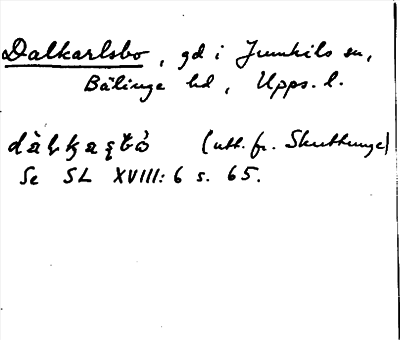 Dalkarlsbo, gd i Jumkils sn,
Bälinge hd, Upps. l.
(utt. fr. Skuttunge)
Se SL XVIII: 6 s. 65.